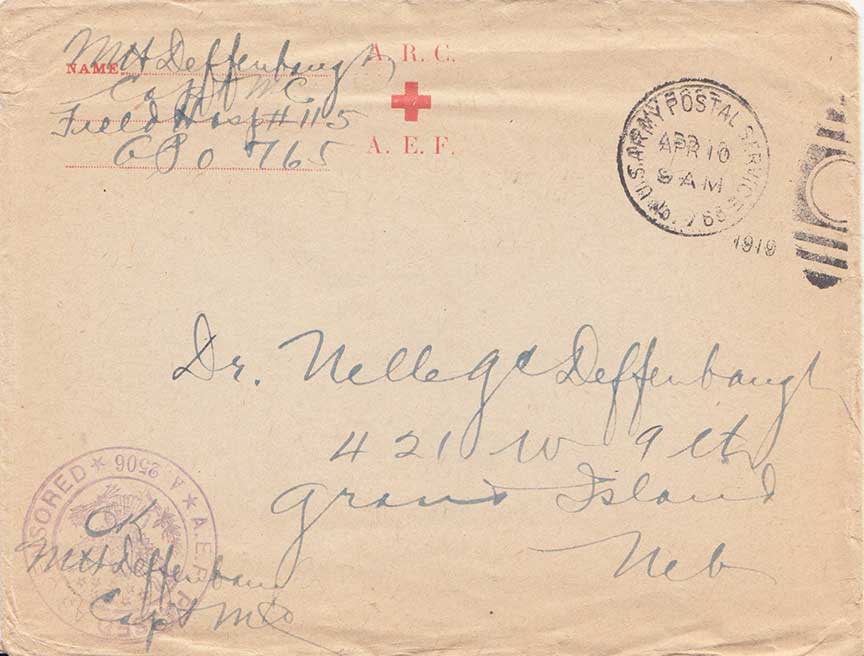 A. R. C.
NAME MH Deffenbaugh
Capt MC
Field Hosp # 115
A. E. F.
APO 765
U.S. ARMY POSTAL SERVICE
APR 10
9 AM
No. 765
1919
Dr. Nelle Deffenbaugh
421 W 9th
Grand Island
Neb
A. 2506
A.E.F.
OK
MH Deffenbau
Capt MC